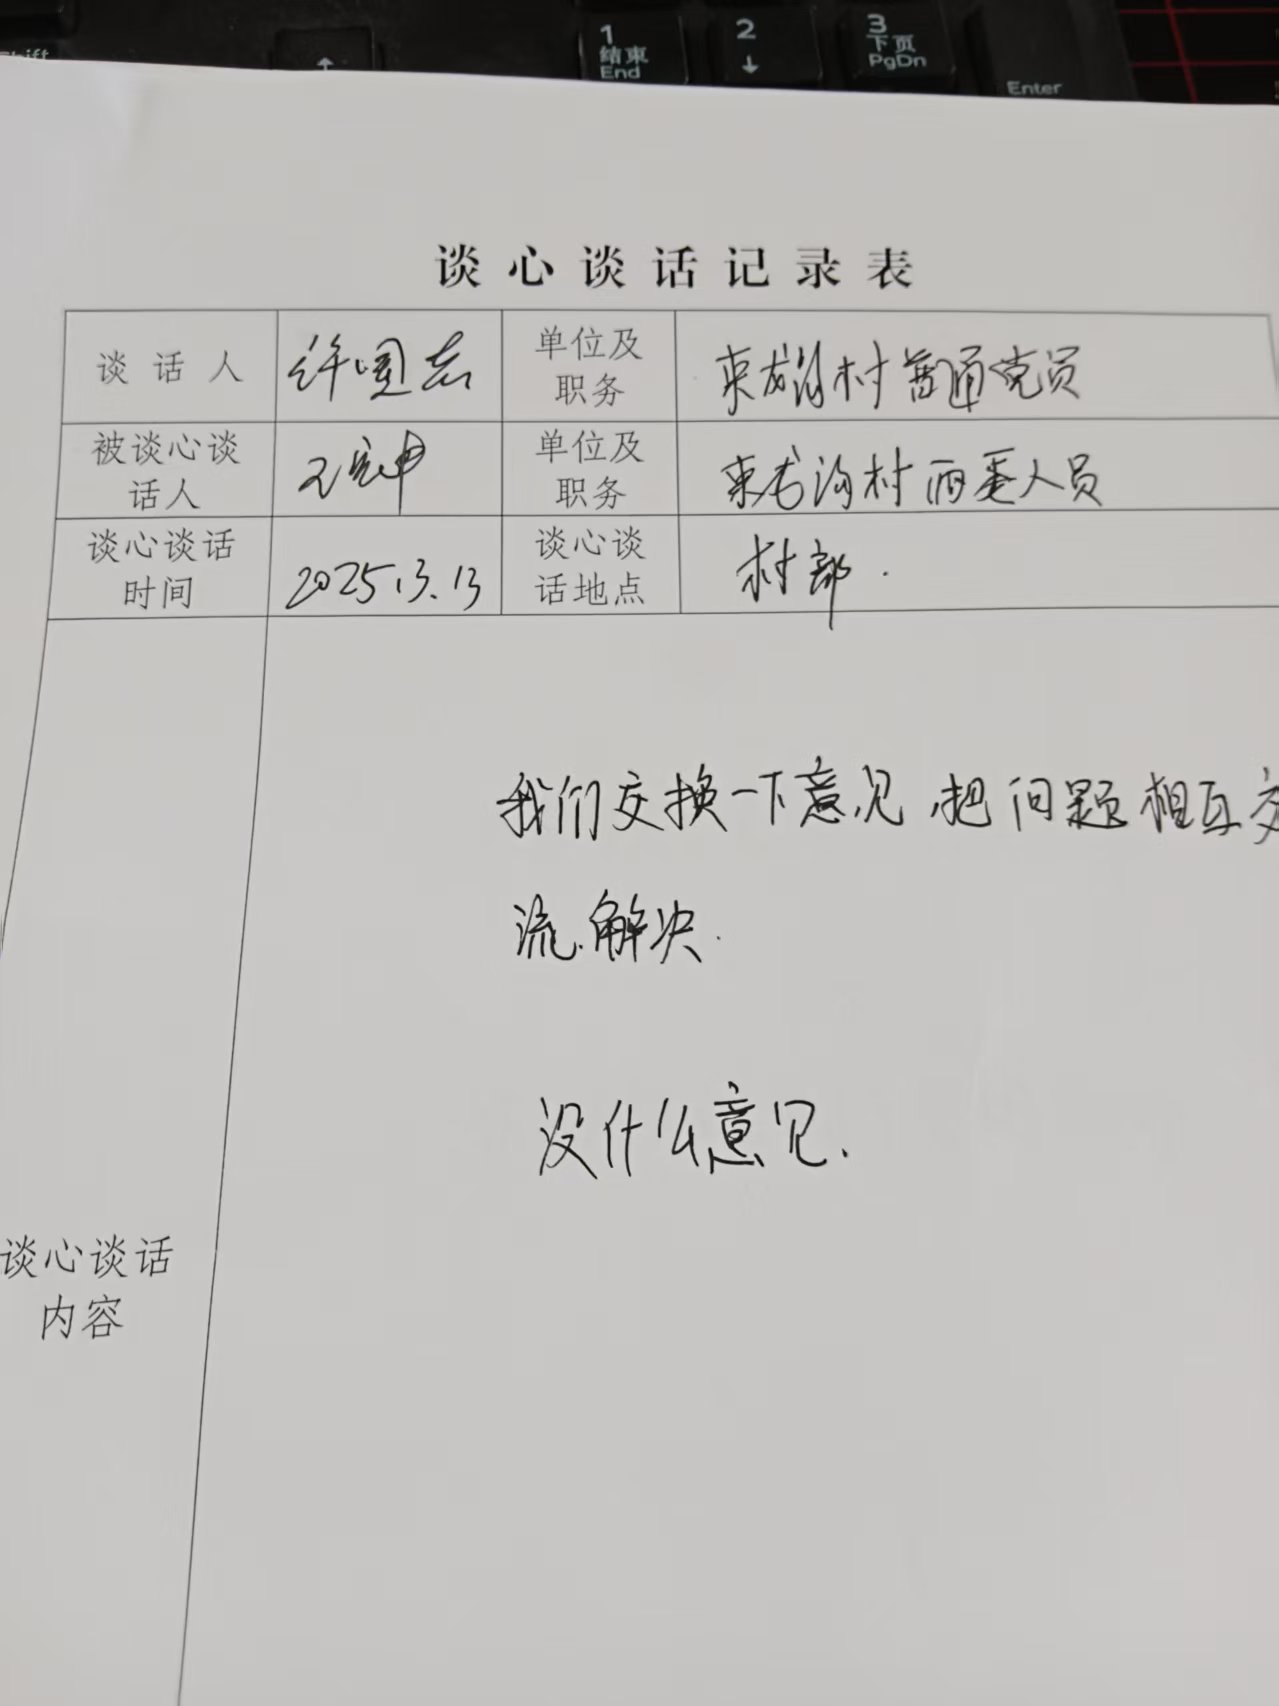 Shift
↑
1
结束
End
2
↓
3
下页
PgDn
Enter
谈心谈话记录表
谈话人 许国志 单位及职务 村普通党员
被谈心谈话人 王 单位及职务 村两委人员
谈心谈话时间 2025.3.13 谈心谈话地点 村部.
谈心谈话内容
我们交换一下意见,把问题相互交
流.解决.
没什么意见.